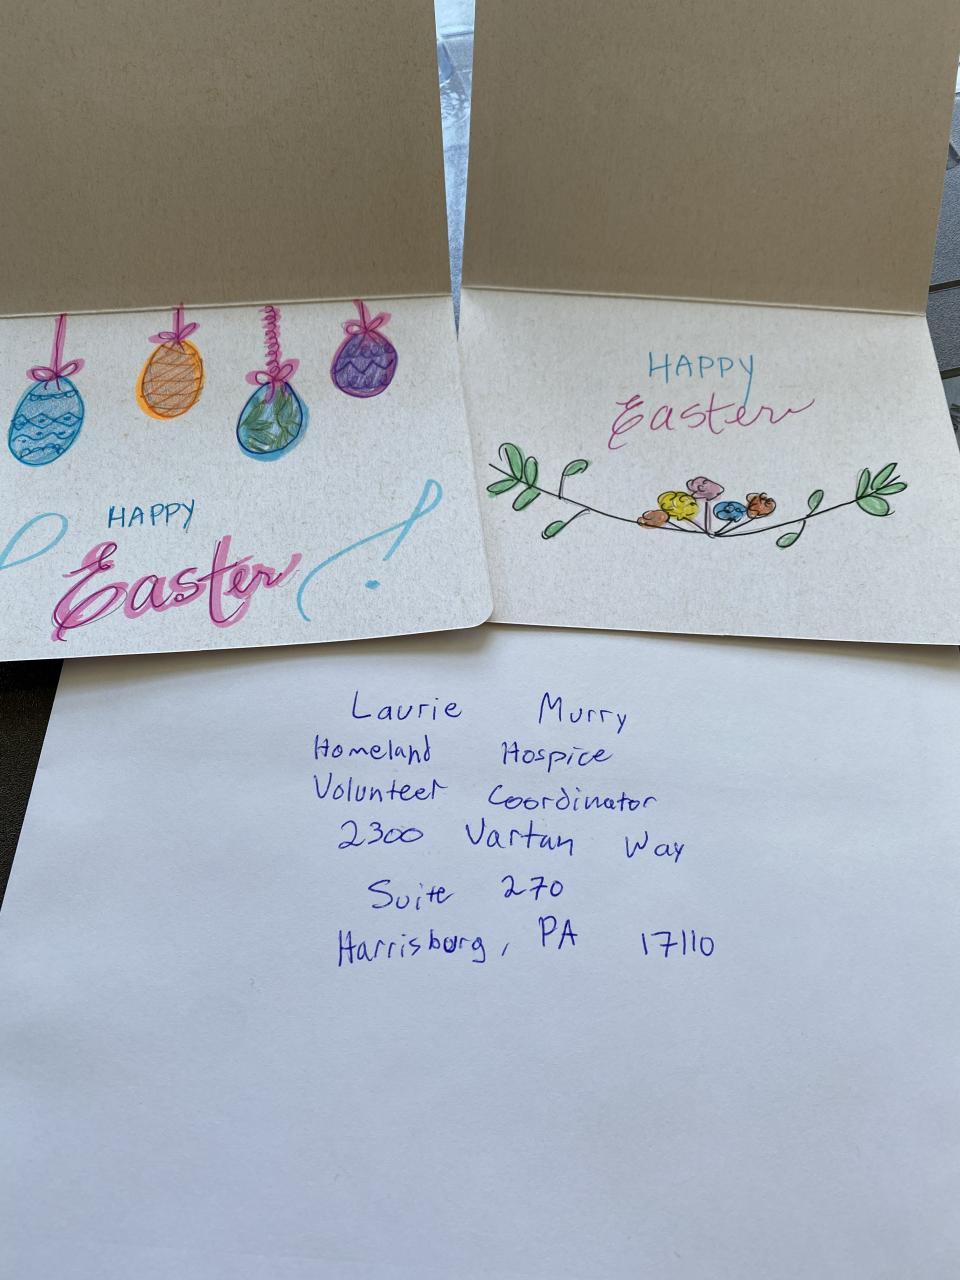 HAPPY
Easter
HAPPY
Easter
Laurie Murry
Homeland Hospice
Volunteer Coordinator
2300 Vartan Way
Suite 270
Harrisburg, PA 17110